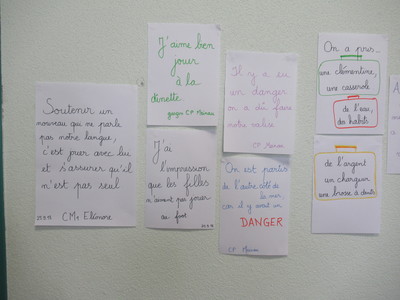 Soutenir un
nouveau qui ne parle
pas notre langue,
c'est jouer avec lui
et s'assurer qu'il
n'est pas seul
CM1 Eléonore
J'aime bien
jouer
à la
dinette
garçon CP
J'ai
l'impression
que les filles
n'aiment pas jouer
au foot
Il y a eu
un danger
on a dû faire
notre valise
CP
On est partis
de l'autre côté de
la mer,
car il y avait un
DANGER
CP
On a pris...
une clémentine,
une casserole
de l'eau,
des habits
de l'argent
un chargeur
une brosse à dents